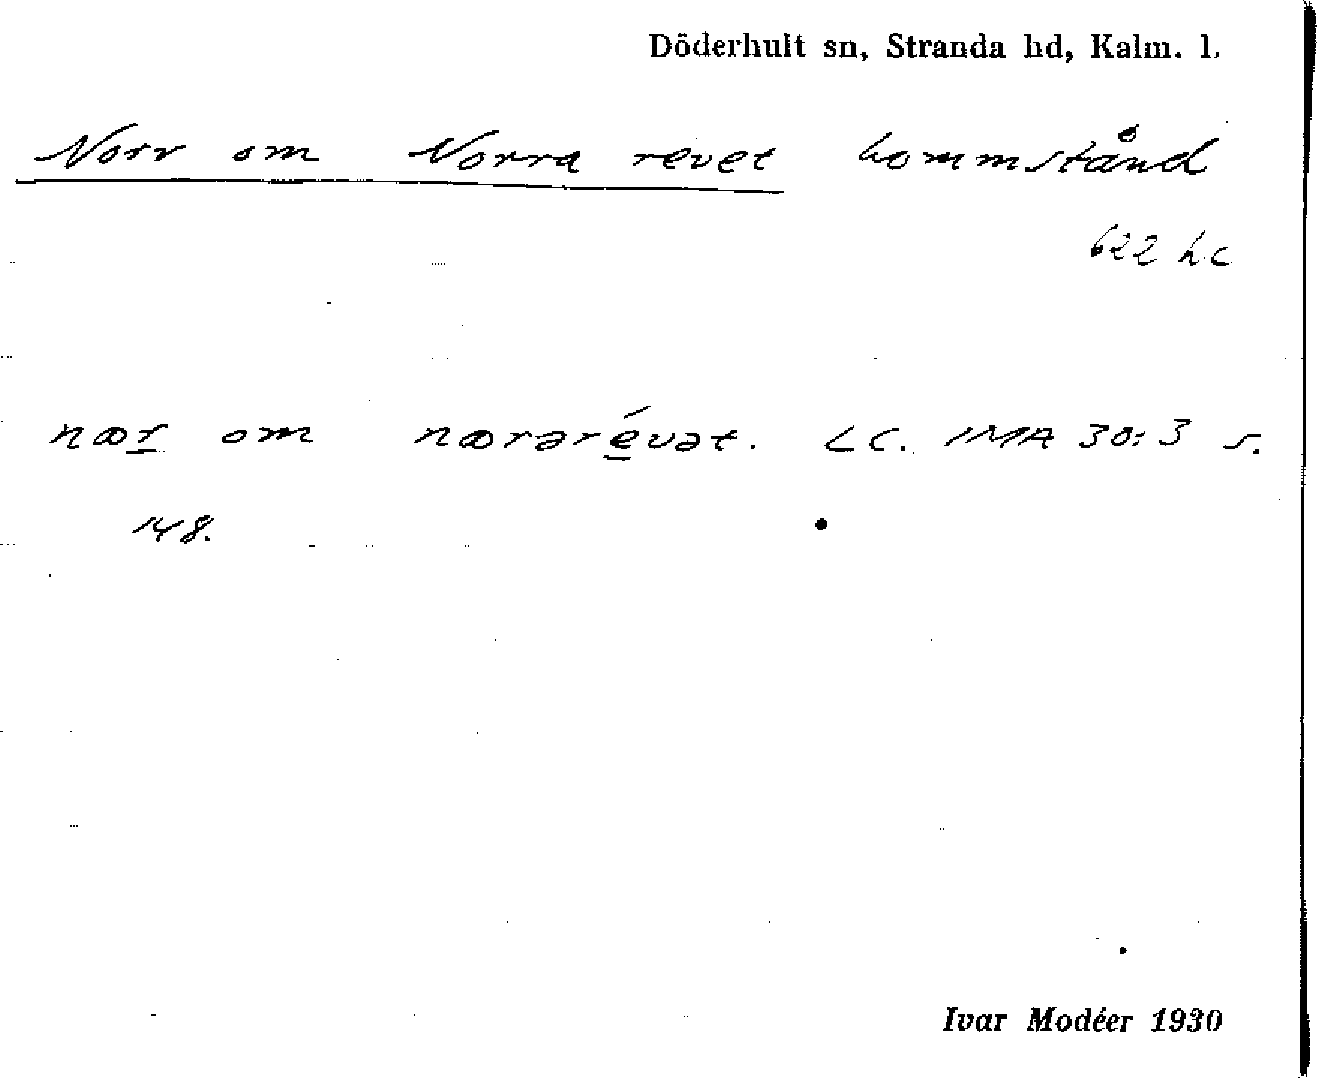 Döderhult sn, Stranda hd, Kalm. l.
Norr om Norra revet bommstånd
622 hc
nœr om nœrarévət. LC. IMA 30:3 s.
148.
Ivar Modéer 1930